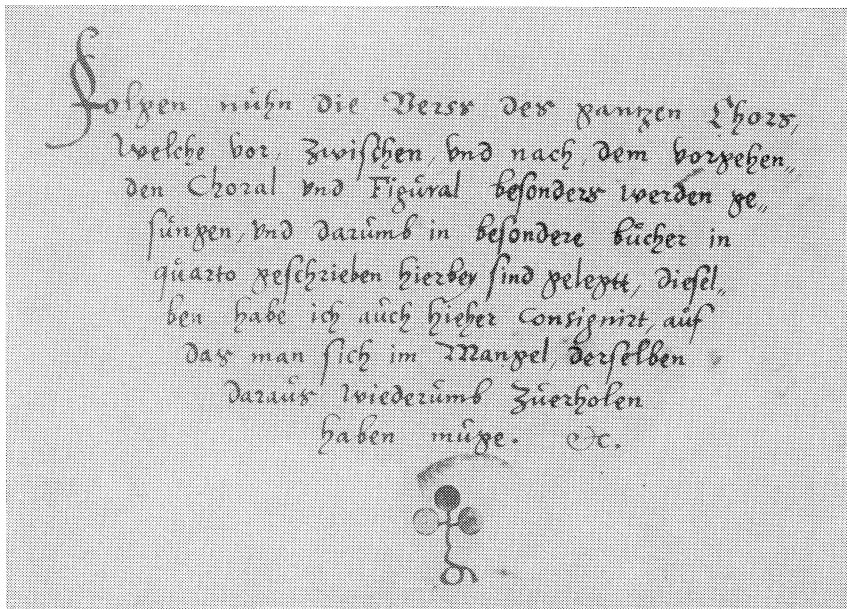 Folgen nuhn die Verss des gantzen Chors,
Welche vor, Zwischen, vnd nach, dem vorgehen„
den Choral vnd Figural besonders werden ge„
sungen, vnd darumb in besondere bücher in
quarto geschrieben hierbey sind gelegtt, diesel„
ben habe ich auch hieher Consignirt, auf
das man sich im Mangel, derselben
daraus Wiederumb Zuerholen
haben müge. &c.